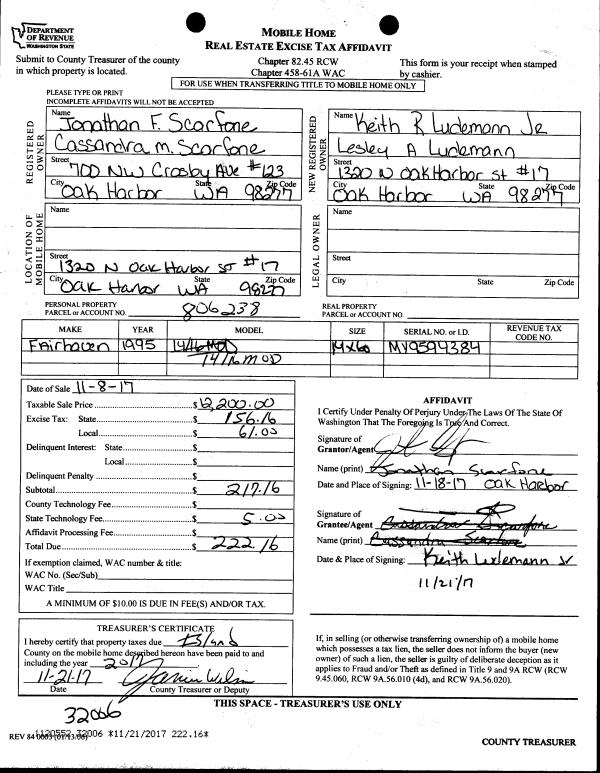 DEPARTMENT
OF REVENUE
WASHINGTON STATE
MOBILE HOME
REAL ESTATE EXCISE TAX AFFIDAVIT
Submit to County Treasurer of the county
in which property is located.
Chapter 82.45 RCW
Chapter 458-61A WAC
This form is your receipt when stamped
by cashier.
FOR USE WHEN TRANSFERRING TITLE TO MOBILE HOME ONLY
PLEASE TYPE OR PRINT
INCOMPLETE AFFIDAVITS WILL NOT BE ACCEPTED
REGISTERED OWNER
Name Jonathan F. Scarfone
Cassandra M. Scarfone
Street 700 NW Crosby Ave #123
City Oak Harbor State WA Zip Code 98277
NEW REGISTERED OWNER
Name Keith R Ludemann Jr
Lesley A Ludemann
Street 1320 N Oak Harbor St #17
City Oak Harbor State WA Zip Code 98277
LOCATION OF MOBILE HOME
Name
Street 1320 N Oak Harbor St #17
City Oak Harbor State WA Zip Code 98277
LEGAL OWNER
Name
Street
City State Zip Code
PERSONAL PROPERTY
PARCEL or ACCOUNT NO. 806238
REAL PROPERTY
PARCEL or ACCOUNT NO.
MAKE YEAR MODEL SIZE SERIAL NO. or I.D. REVENUE TAX CODE NO.
Fairhaven 1995 14x60 MY9594384
Date of Sale 11-8-17
Taxable Sale Price $ 12,200.00
Excise Tax: State $ 156.16
Local $ 61.00
Delinquent Interest: State $
Local $
Delinquent Penalty $
Subtotal $ 217.16
County Technology Fee $
State Technology Fee $ 5.00
Affidavit Processing Fee $
Total Due $ 222.16
If exemption claimed, WAC number & title:
WAC No. (Sec/Sub)
WAC Title
A MINIMUM OF $10.00 IS DUE IN FEE(S) AND/OR TAX.
AFFIDAVIT
I Certify Under Penalty Of Perjury Under The Laws Of The State Of
Washington That The Foregoing Is True And Correct.
Signature of
Grantor/Agent
Name (print) Jonathan Scarfone
Date and Place of Signing: 11-18-17 Oak Harbor
Signature of
Grantee/Agent
Name (print) Cassandra Scarfone
Date & Place of Signing: Keith Ludemann Jr
11/21/17
TREASURER'S CERTIFICATE
I hereby certify that property taxes due Island
County on the mobile home described hereon have been paid to and
including the year 2017
11-21-17
Date County Treasurer or Deputy
If, in selling (or otherwise transferring ownership of) a mobile home
which possesses a tax lien, the seller does not inform the buyer (new
owner) of such a lien, the seller is guilty of deliberate deception as it
applies to Fraud and/or Theft as defined in Title 9 and 9A RCW (RCW
9.45.060, RCW 9A.56.010 (4d), and RCW 9A.56.020).
THIS SPACE - TREASURER'S USE ONLY
32006
REV 84 0003 1120552 32006 *11/21/2017 222.16*
COUNTY TREASURER